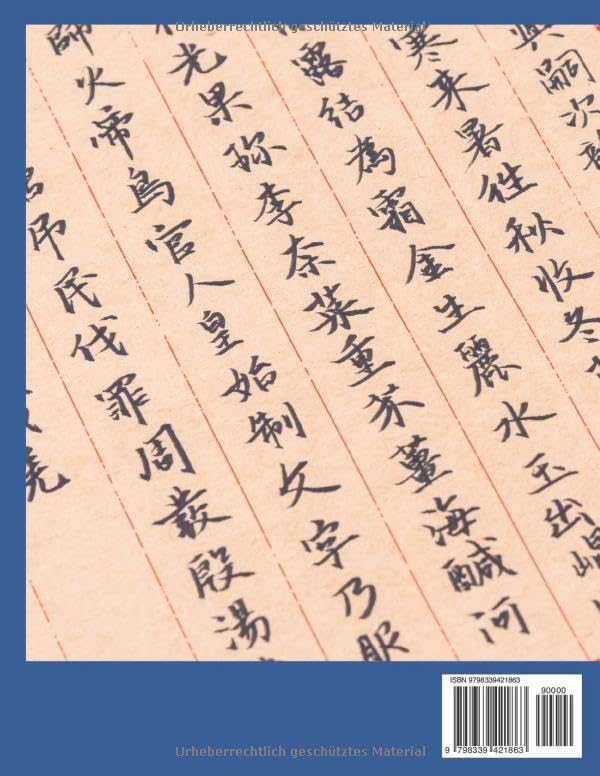 Urheberrechtlich geschütztes Material
與嗣次韻
寒來暑往秋收冬
露結為霜金生麗水玉出崑
光果珎李奈菜重芥薑海鹹河
師火帝鳥官人皇始制文字乃服
吊民伐罪周發殷湯
羌
ISBN 9798339421863
90000
9 798339 421863
Urheberrechtlich geschütztes Material